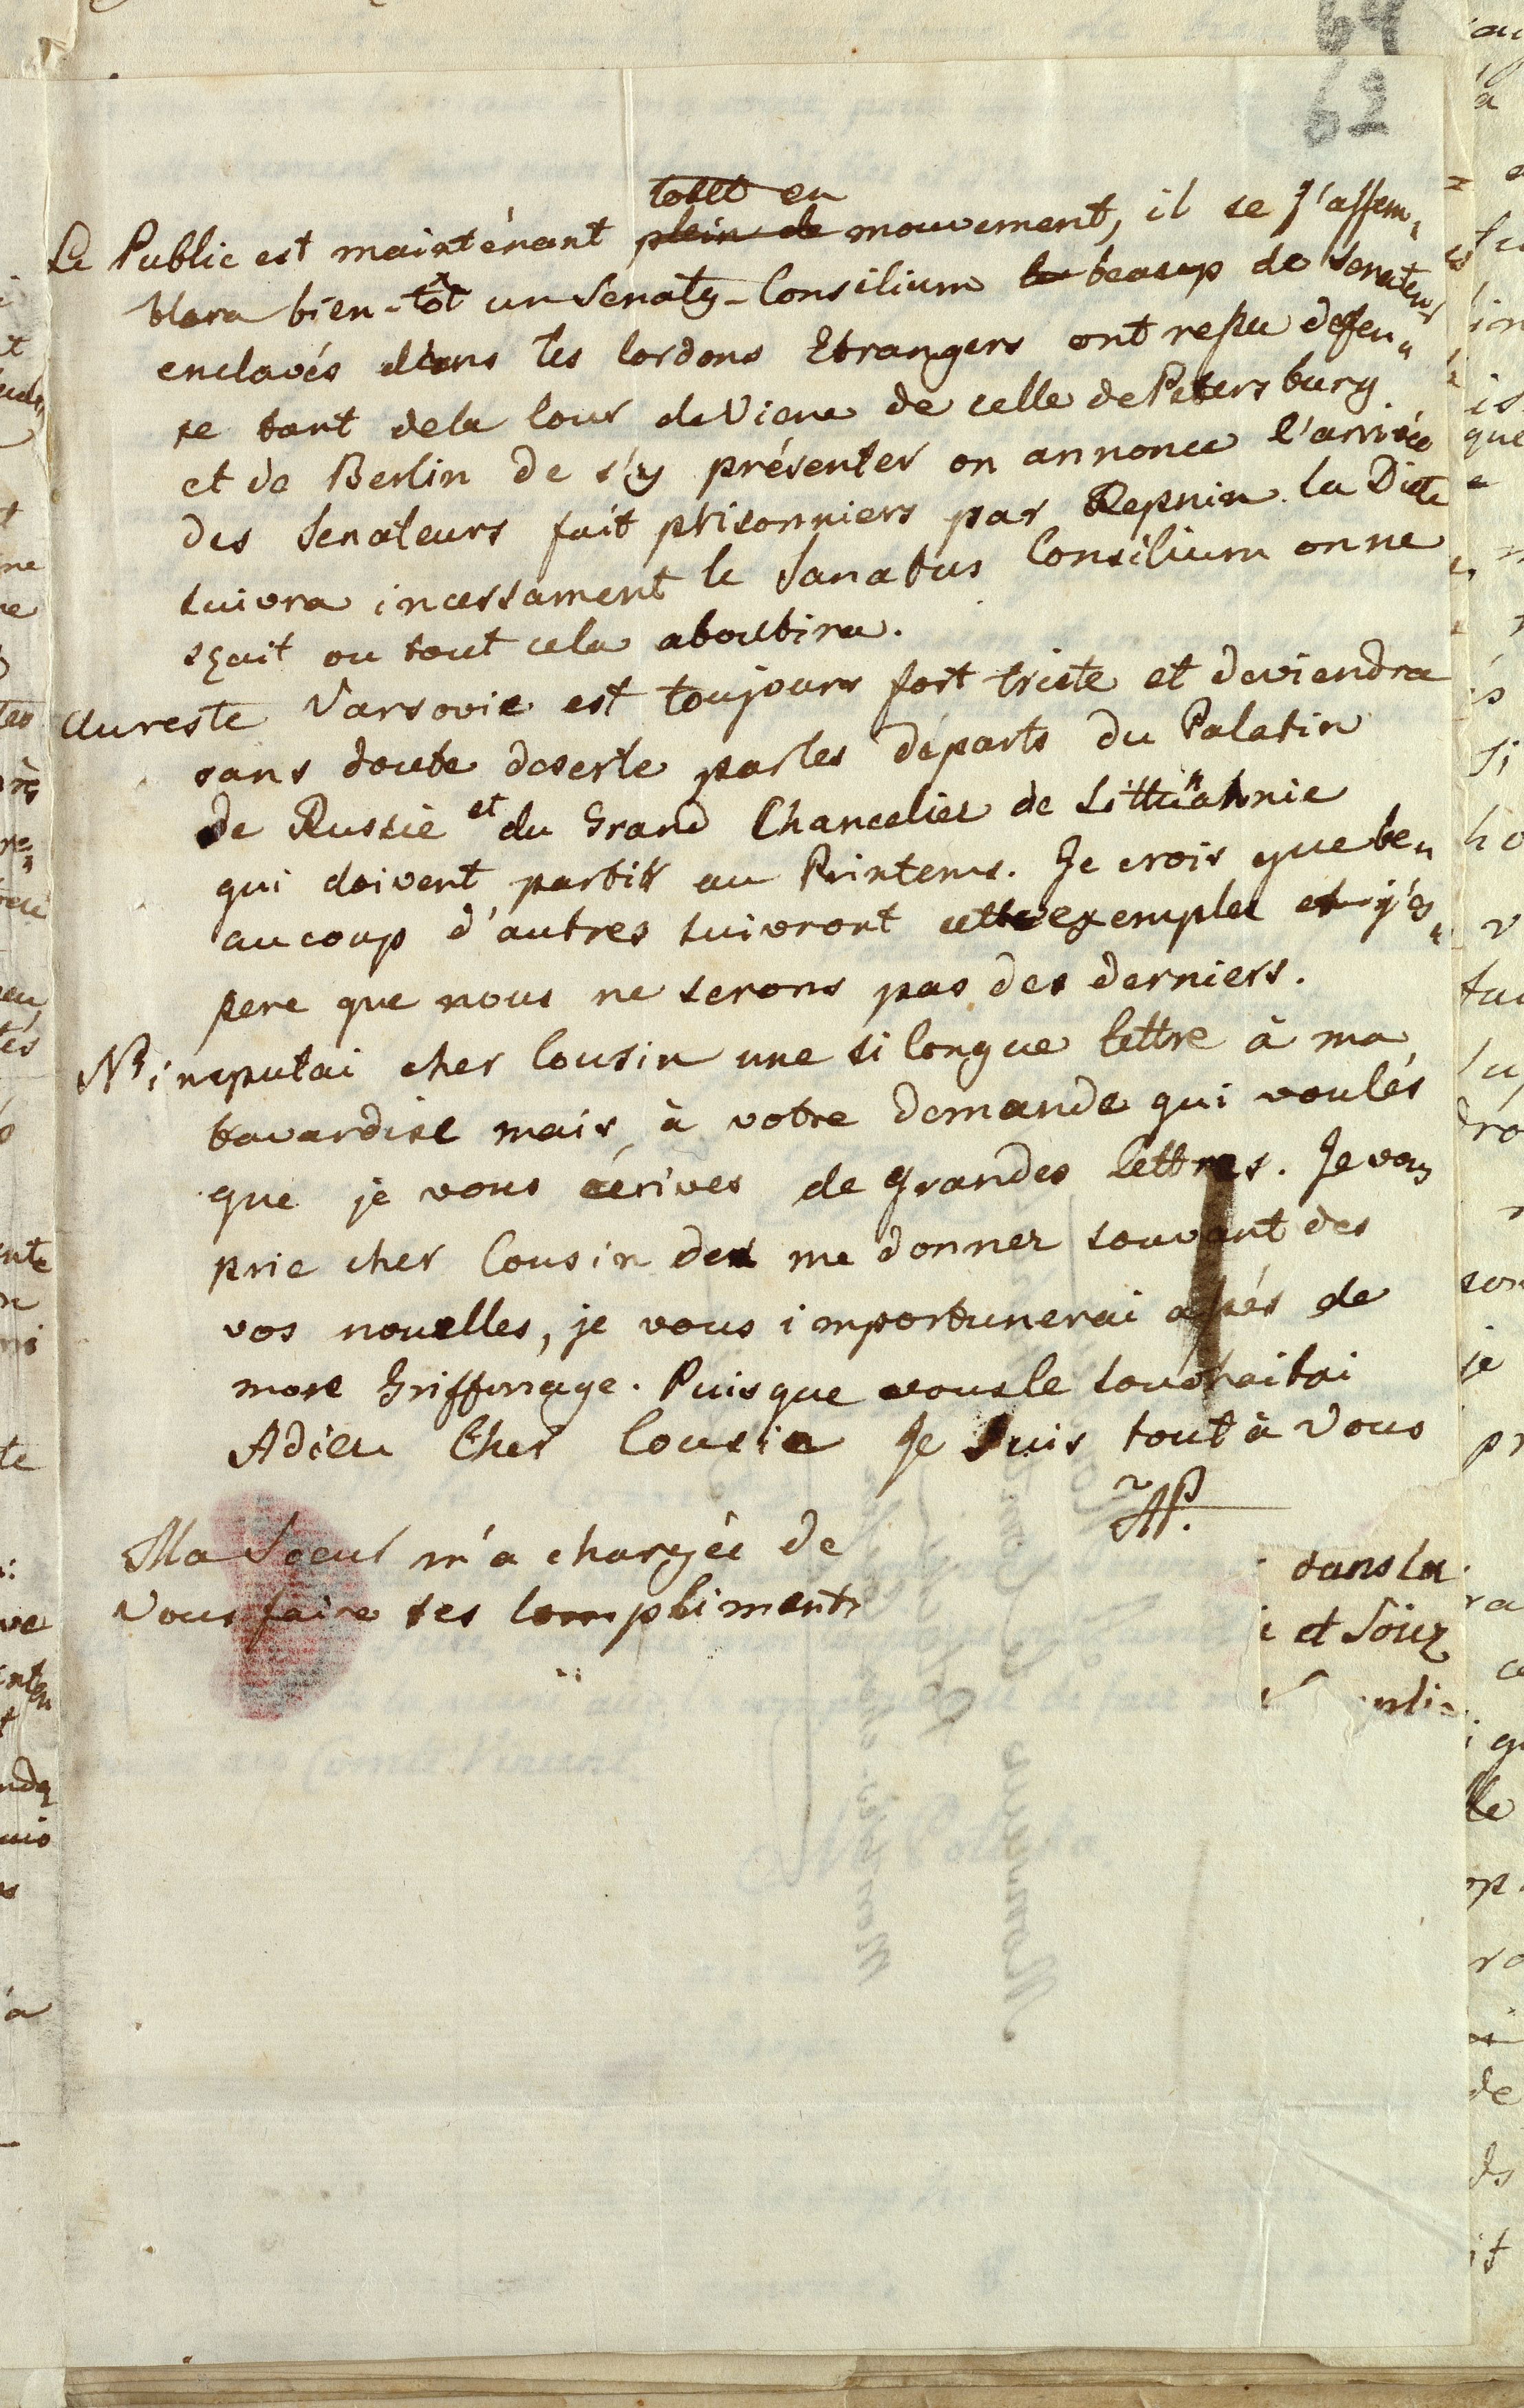 64
62
tout en
Le Public est mainténant plein de mouvement, il se s'assem„
blera bien-tôt un Senaty-Consilium beacup de Senateurs
enclavés dans les Cordons Etrangers ont reçu defen„
se tant dela Cour de Viene de celle de Petersburg
et de Berlin de s'y présenter on annonce l'arrivée
des Senateurs fait prisonniers par Repnin. la Diete
suivra incessament le Sanatus Consilium on ne
sçait ou tout cela aboutira.
Au reste Varsovie est toujours fort triste et deviendra
sans doute deserte par les départs du Palatin
de Russie et du Grand Chancelier de Littuannie
qui doivent partir au Printems. Je crois que be„
aucoup d'autres suivront cette exemple et j'es„
pere que nous ne serons pas des derniers.
NB imputai cher Cousin une si longue lettre à ma
bavardise mais à votre demande qui voulés
que je vous écrives de grandes lettres. Je vous
prie cher Cousin de me donner souvant des
vos nouelles, je vous importunerai assés de
mon Griffonage. Puisque vous le souhaitai
Adieu Cher Cousin Je Suis tout à Vous
AP.
Ma Soeur m'a chargée de
Vous faire ses Compliments
dans la
et Souz